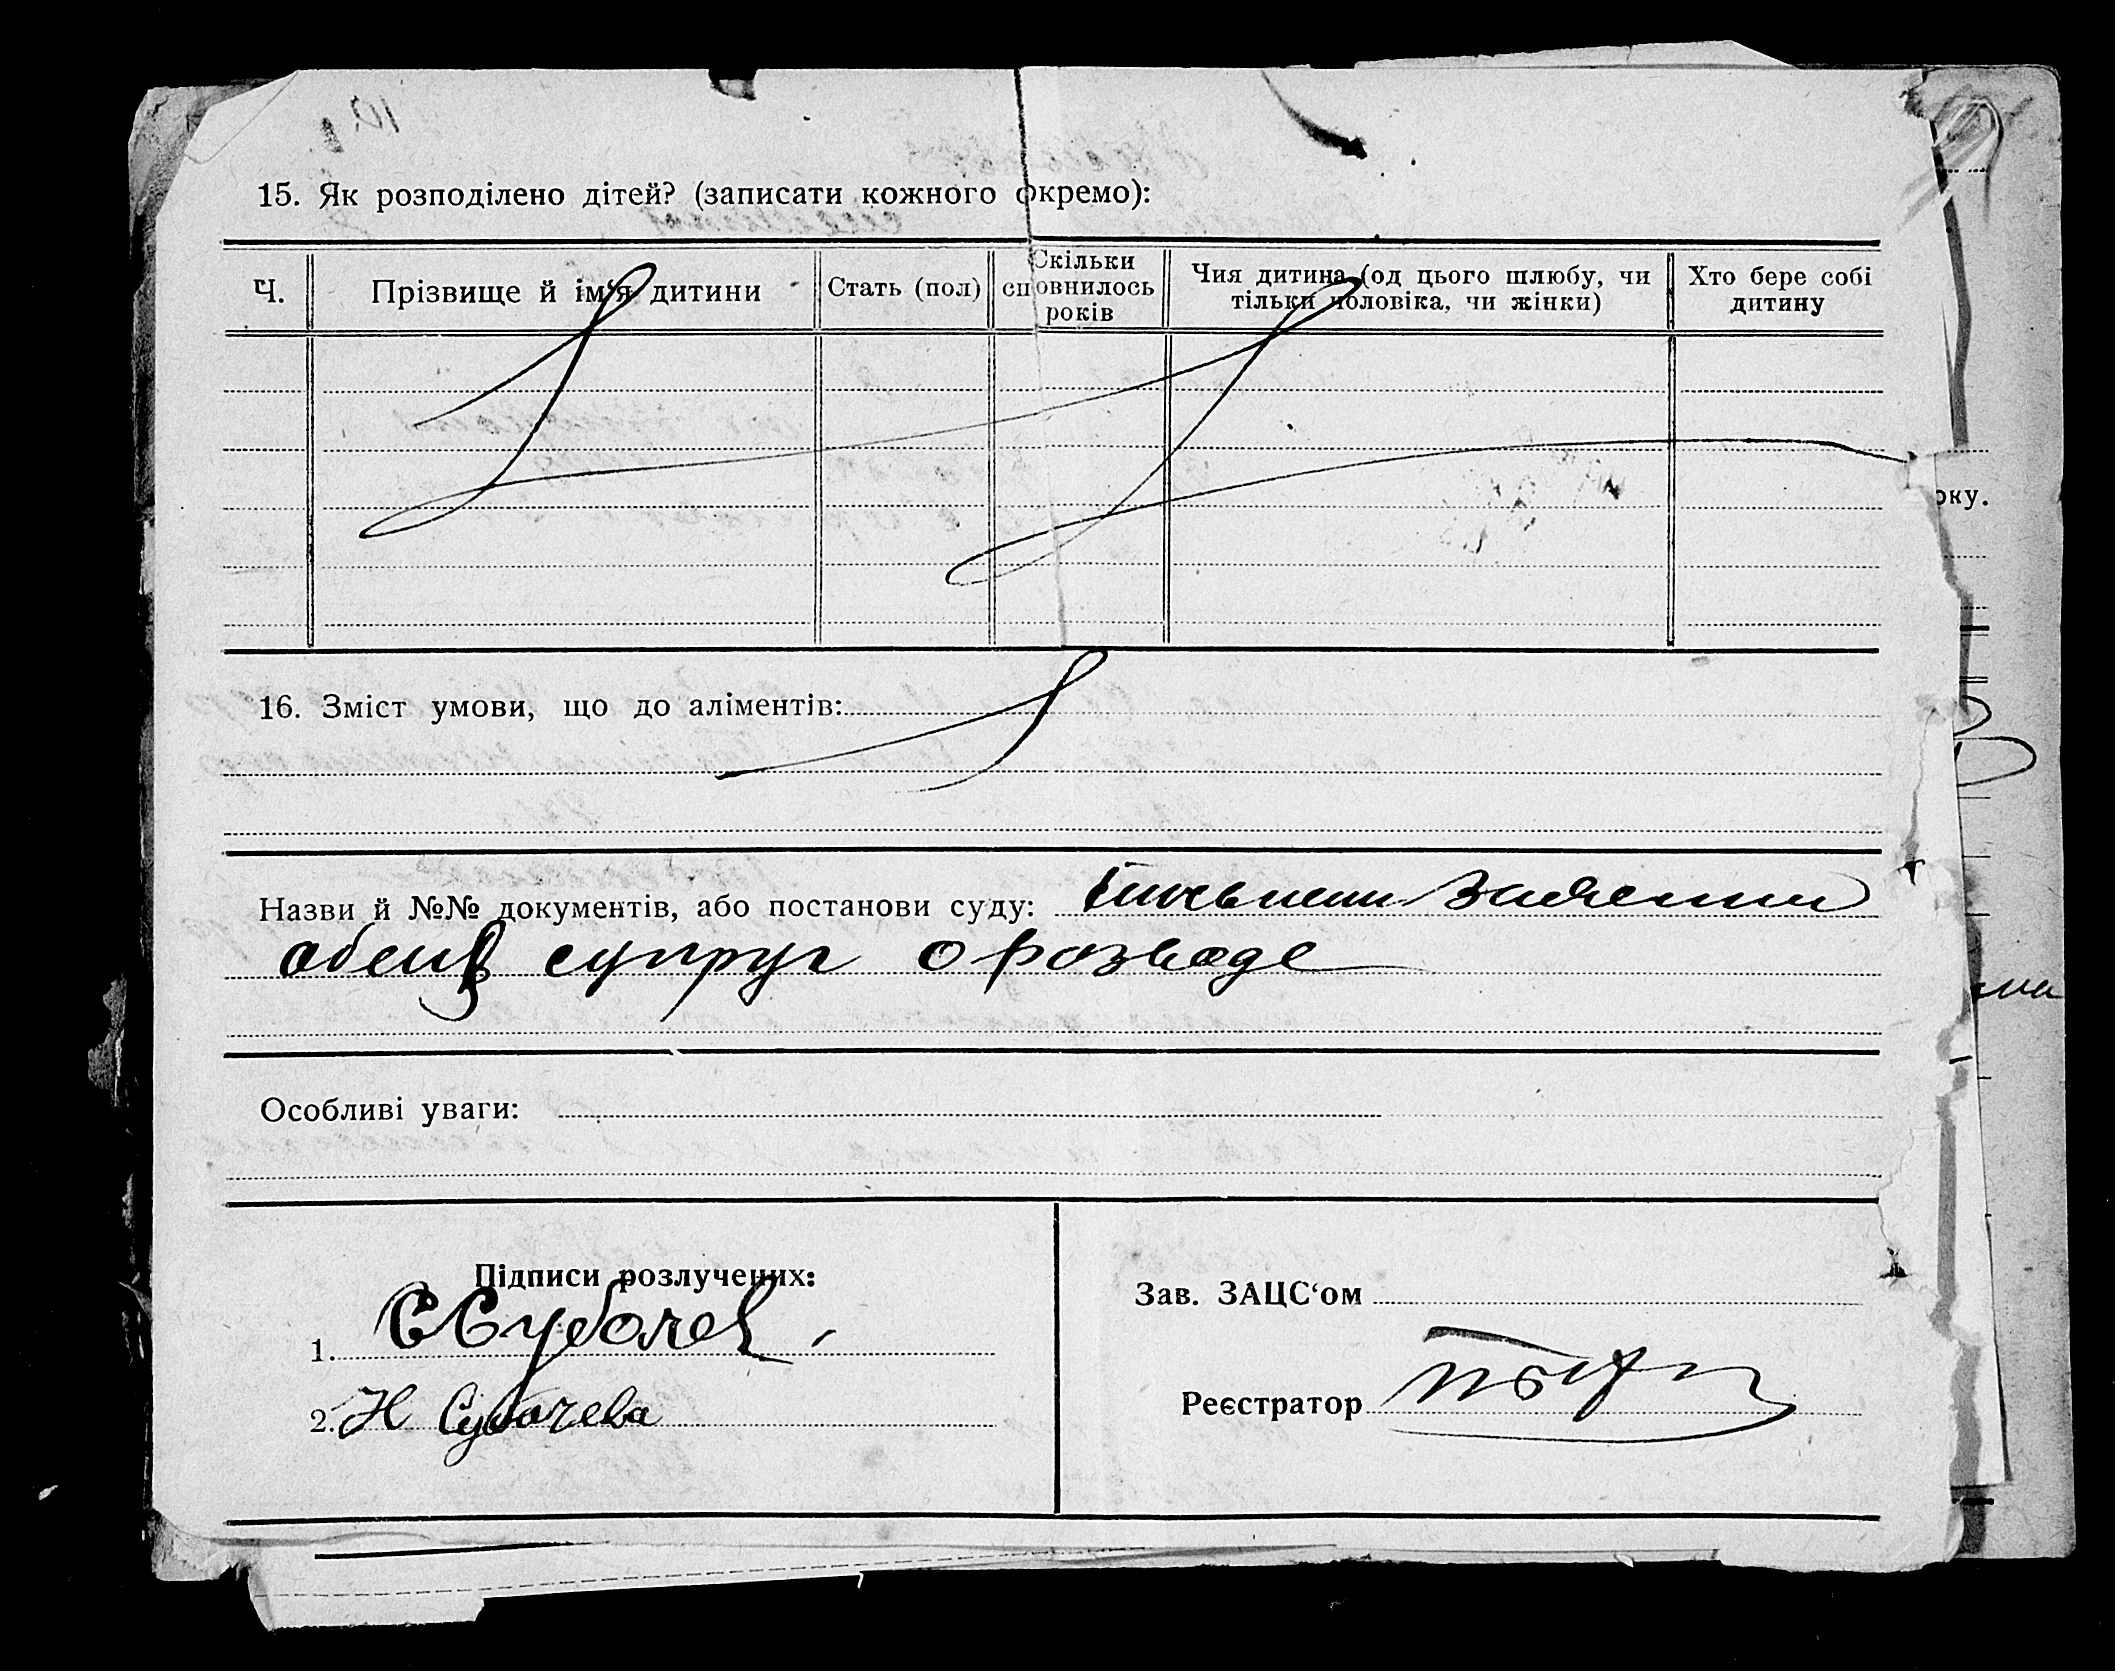 15. Як розподілено дітей? (записати кожного окремо):
Ч.
Прізвище й ім'я дитини
Стать (пол)
Скільки сповнилось років
Чия дитина (од цього шлюбу, чи тільки чоловіка, чи жінки)
Хто бере собі дитину
оку.
16. Зміст умови, що до аліментів:
Назви й №№ документів, або постанови суду: письмени заяении
обеих супруг о розводе
Особливі уваги:
Підписи розлучених:
1. С Субочев
2. Н Субочева
Зав. ЗАЦС‘ом
Реєстратор